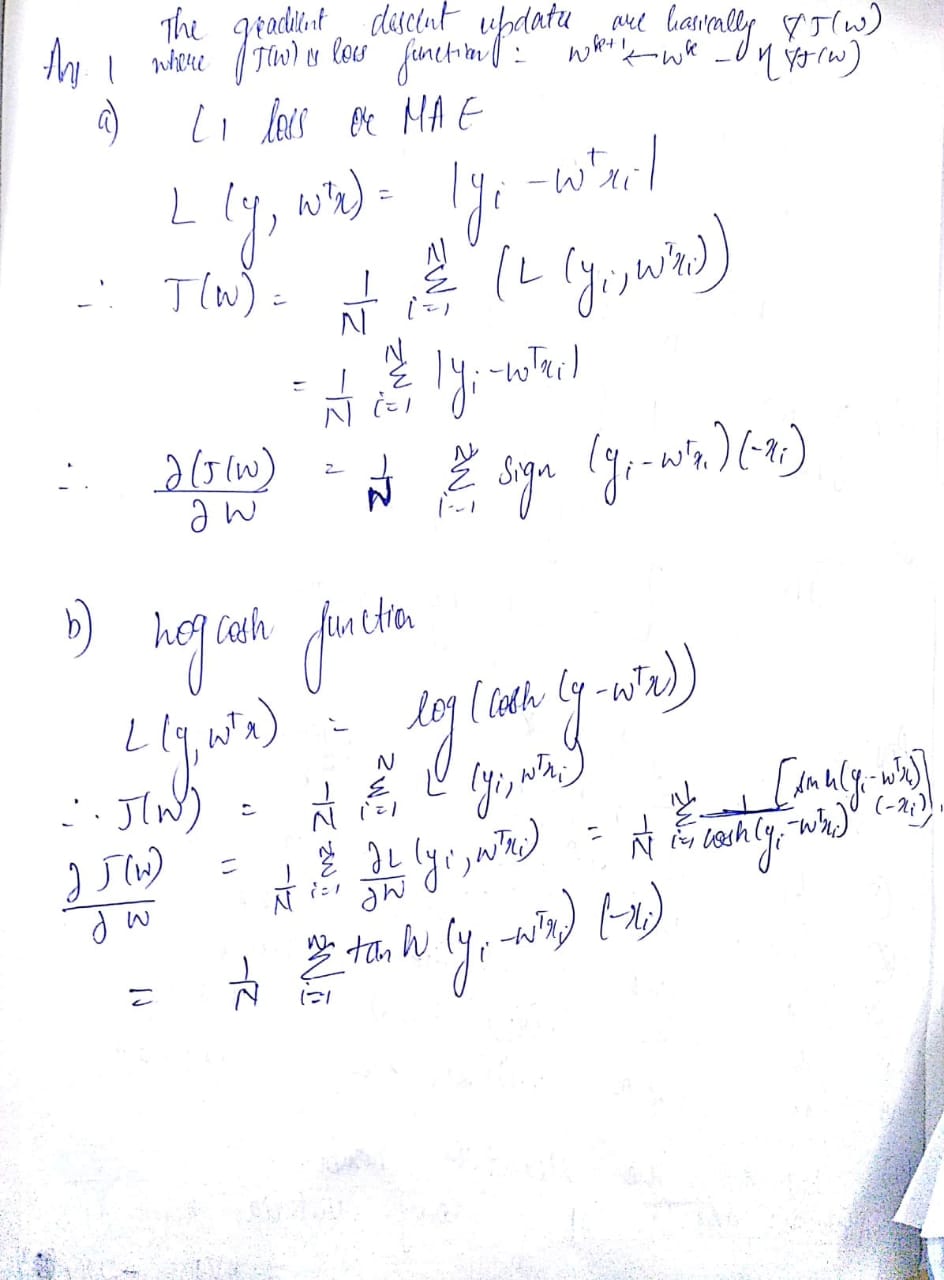 The gradient descent update are basically ∇J(w)
Ans 1 where J(w) is loss function : w^{k+1} ← w^k - η ∇J(w)
a) L1 loss or MAE
L(y, w^T x) = |y_i - w^T x_i|
∴ J(w) = 1/N Σ_{i=1}^{N} (L(y_i, w^T x_i))
= 1/N Σ_{i=1}^{N} |y_i - w^T x_i|
∴ ∂(J(w))/∂w = 1/N Σ_{i=1}^{N} sign (y_i - w^T x_i)(-x_i)
b) Log cosh function
L(y, w^T x) = log(cosh(y - w^T x))
∴ J(w) = 1/N Σ_{i=1}^{N} L(y_i, w^T x_i)
∂J(w)/∂w = 1/N Σ_{i=1}^{N} ∂L/∂w (y_i, w^T x_i) = 1/N Σ_{i=1}^{N} 1/cosh(y_i - w^T x_i) [sinh(y_i - w^T x_i)(-x_i)]
= 1/N Σ_{i=1}^{N} tanh (y_i - w^T x_i) (-x_i)